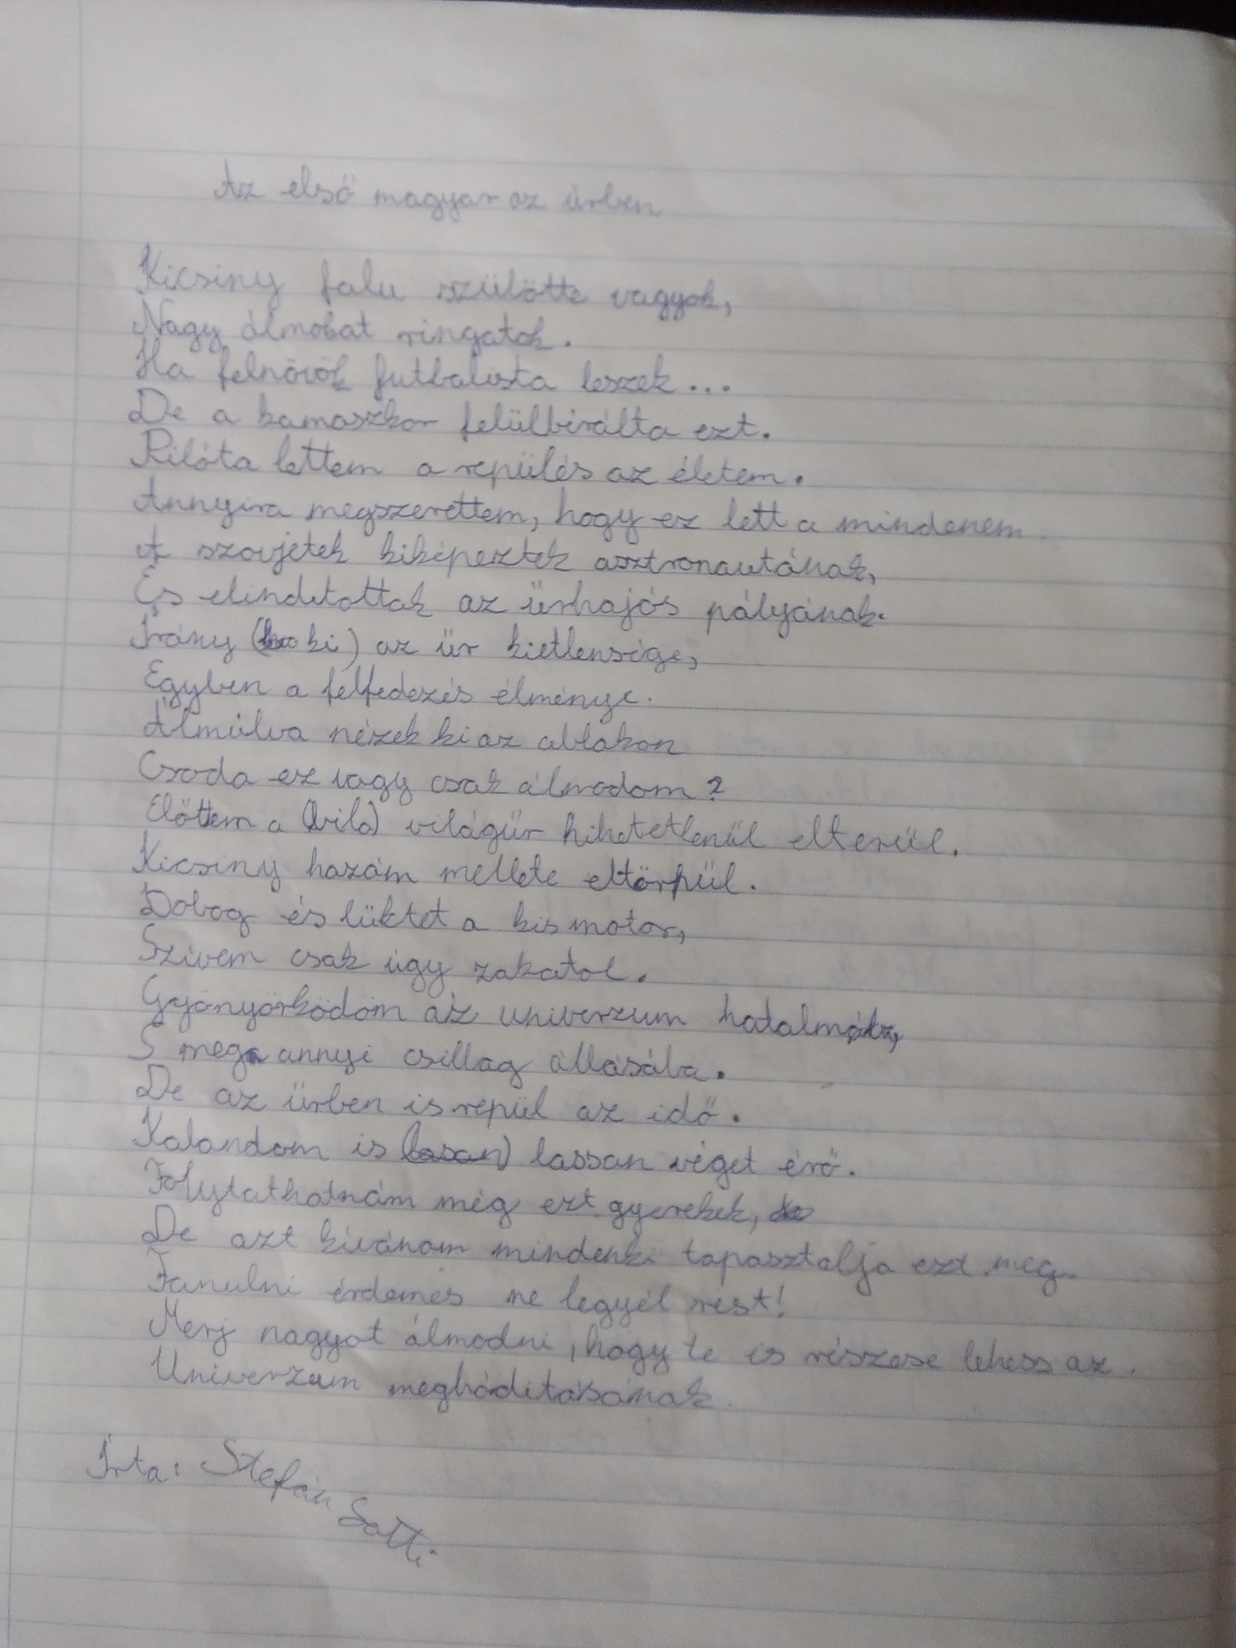 Az első magyar az űrben
Kicsiny falu szülötte vagyok,
Nagy álmokat ringatok.
Ha felnövök futbalista leszek...
De a kamaszkor felülbirálta ezt.
Pilóta lettem a repülés az életem.
Annyira megszerettem, hogy ez lett a mindenem.
A szovjetek kiképeztek asztronautának,
És elinditottak az űrhajós pályának.
Irány (ki) az űr kietlensége,
Egyben a felfedezés élménye.
Ámúlva nézek ki az ablakon
Csoda ez vagy csak álmodom?
Előttem a (vilá) világűr hihetetlenül elterül.
Kicsiny hazám mellete eltörpül.
Dobog és lüktet a kis motor,
Szivem csak úgy zakatol.
Gyönyörködöm az univerzum
S meg annyi csillag állásába.
De az űrben is repül az idő.
Kalandom is (lasan) lassan véget érő.
Folytathatnám még ezt gyerekek,
De azt kivánom mindenki tapasztalja ezt meg.
Tanulni érdemes ne legyél rest!
Merj nagyot álmodni, hogy te is részese lehess az
Univerzum meghóditásának.
Irta: Stefán Satti